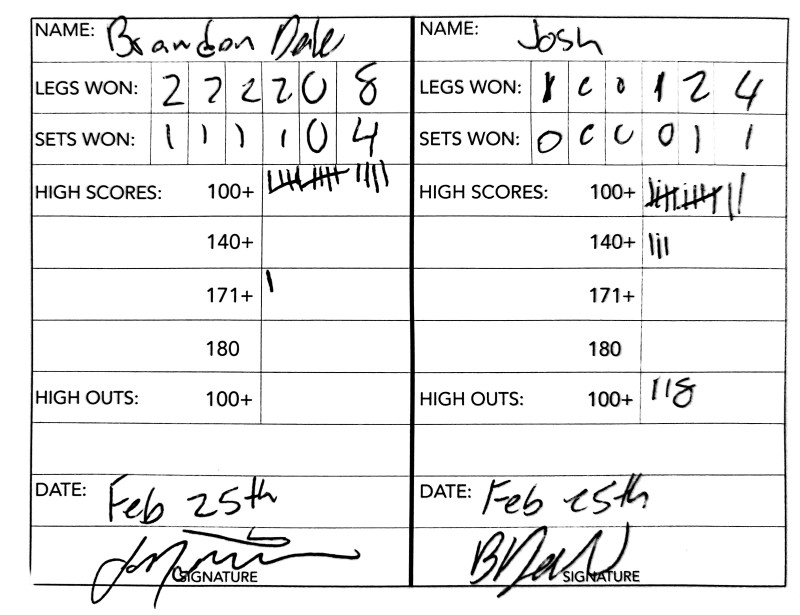 NAME: Brandon Dale NAME: Josh
LEGS WON: 2 2 2 2 0 8 LEGS WON: 1 0 0 1 2 4
SETS WON: 1 1 1 1 0 4 SETS WON: 0 0 0 0 1 1
HIGH SCORES: 100+ HIGH SCORES: 100+
140+ 140+
171+ 171+
180 180
HIGH OUTS: 100+ HIGH OUTS: 100+ 118
DATE: Feb 25th DATE: Feb 25th
SIGNATURE SIGNATURE